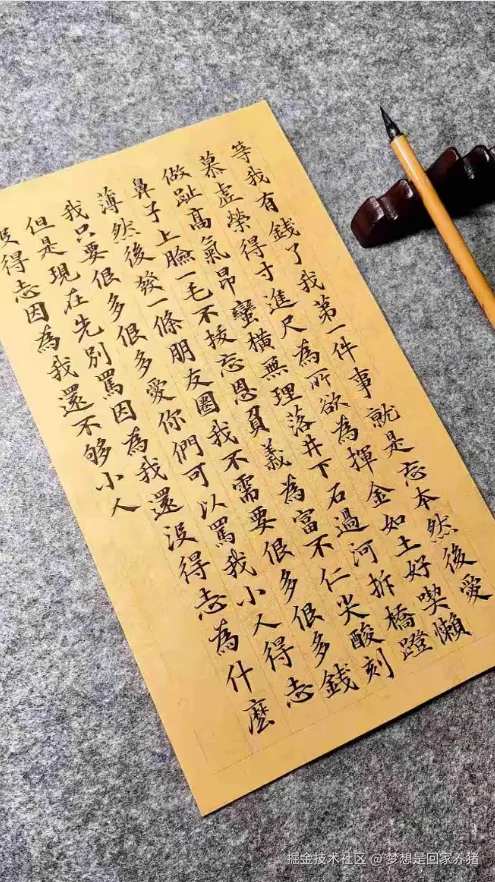 等我有錢了我第一件事就是忘本然後愛
慕虛榮得寸進尺為所欲為揮金如土好喫懶
做趾高氣昂蠻橫無理落井下石過河拆橋蹬
鼻子上臉一毛不拔忘恩負義為富不仁尖酸刻
薄然後發一條朋友圈我不需要很多很多錢
我只要很多很多愛你們可以罵我小人得志
但是現在先別罵因為我還沒得志為什麼
沒得志因為我還不够小人
掘金技术社区 @ 梦想是回家养猪